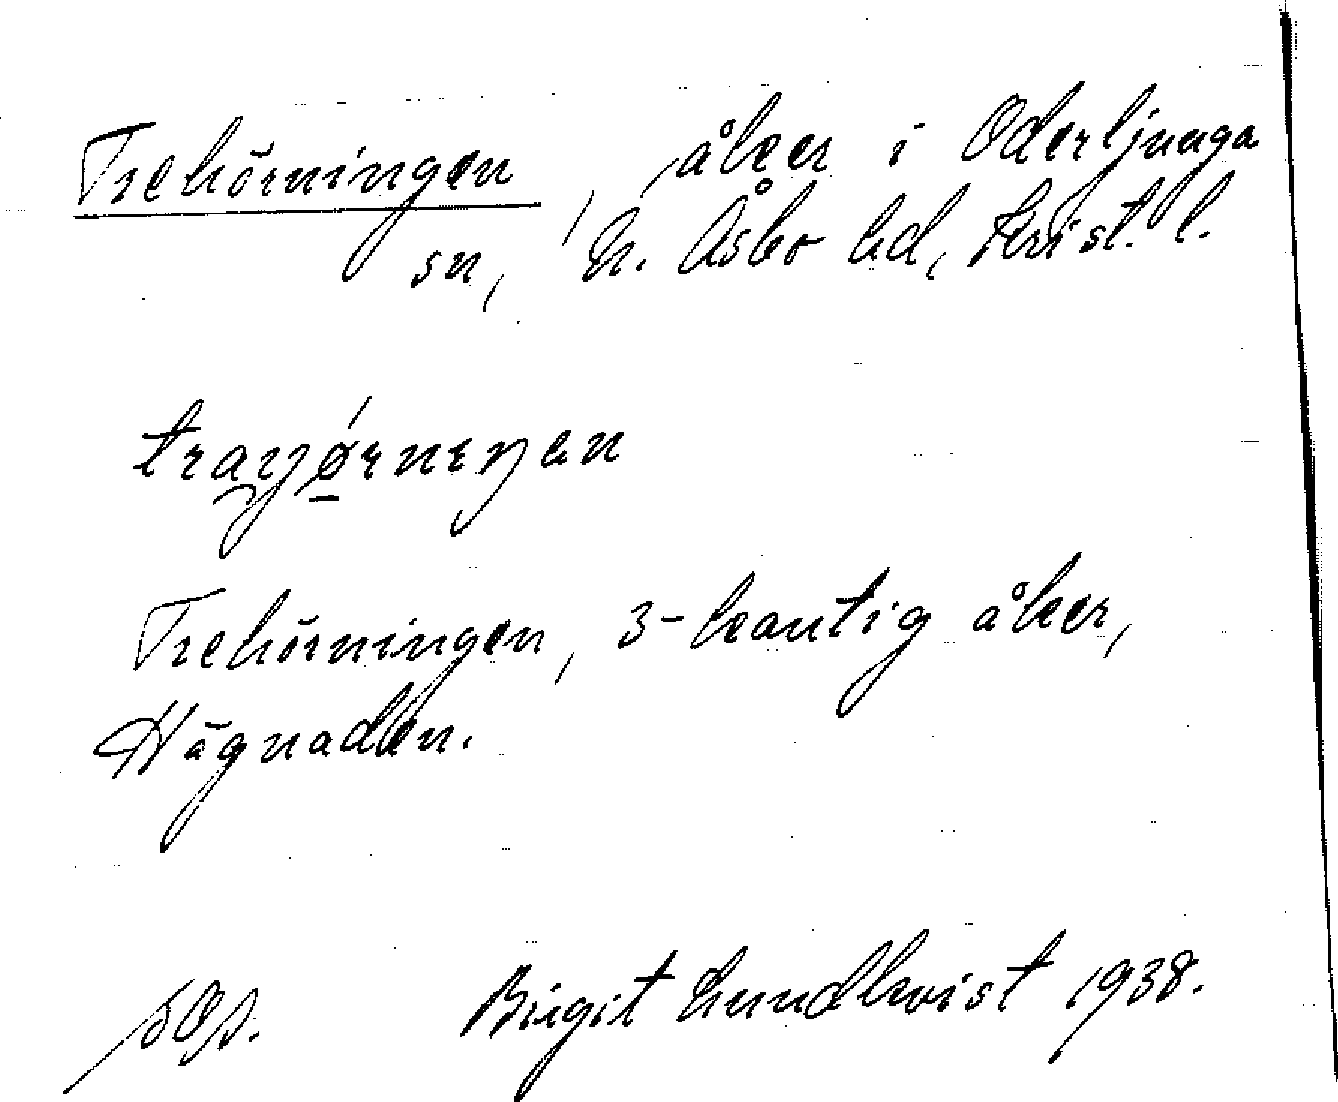 Trehörningen, åker i Oderljunga
sn, N. Åsbo hd, Krist. l.
Trehörningen, 3-kantig åker,
Hägnaden.
Birgit Lundkvist 1938.